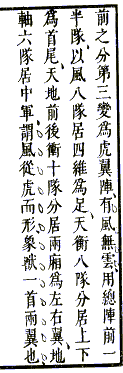 前之分第三變爲虎翼陣有風無雲用總陣前一
半隊以風八隊居四維爲足天衡八隊分居上下
爲首尾天地前後衝十隊分居兩廂爲左右翼地
軸六隊居中軍謂風從虎而形象獸一首兩翼也